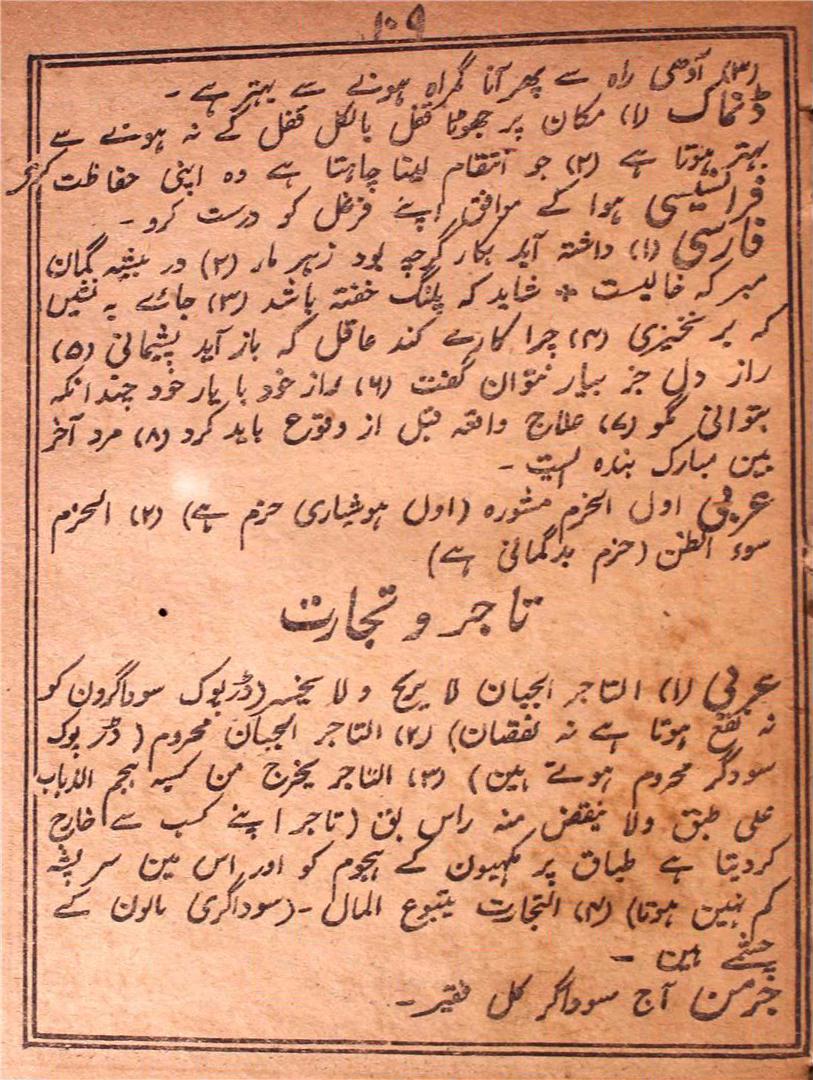 ۱۰۹
(۳) آدھی راہ سے پھر آنا گمراہ ہونے سے بہتر ہے -
ڈنمارک (۱) مکان پر جھوٹا قفل بالکل قفل کے نہ ہونے سے
بہتر ہوتا ہے (۲) جو انتقام لینا چاہتا ہے وہ اپنی حفاظت کرے
فرانسیسی ہوا کے موافق اپنے فرغل کو درست کرو -
فارسی (۱) داشته آید بکار گرچه بود زہر مار (۲) در بیشہ گمان
مبر کہ خالیست * شاید کہ پلنگ خفتہ باشد (۳) جائے بہ نشیں
کہ بر نخیزی (۴) چرا کارے کند عاقل کہ باز آید پشیمانی (۵)
راز دل جز بیار نتوان گفت (۶) راز خود با یار خود چندانکہ
بتوانی مگو (۷) علاج واقعہ قبل از وقوع باید کرد (۸) مرد آخر
بین مبارک بندہ است -
عربی اول الحزم مشورہ (اول ہوشیاری حزم ہے) (۲) الحزم
سوء الظن (حزم بدگمانی ہے)
تاجر و تجارت
عربی (۱) التاجر الجبان لا یربح ولا یخسر (ڈرپوک سوداگرون کو
نہ نفع ہوتا ہے نہ نقصان) (۲) التاجر الجبان محروم (ڈرپوک
سوداگر محروم ہوتے ہین) (۳) التاجر یخرج من کسبہ ہجم الذباب
علی طبق ولا ینقض منہ راس بق (تاجر اپنے کسب سے خارج
کردیتا ہے طباق پر مکہیون کے ہجوم کو اور اس مین سر پشہ
کم نہین ہوتا) (۴) التجارت ینبوع المال - (سوداگری مالون کے
چشمے ہین -
جرمن آج سوداگر کل فقیر -